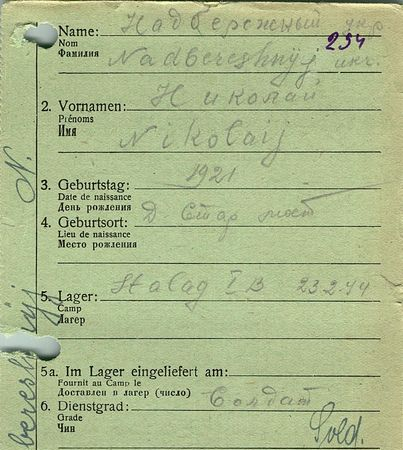 Name: Надбережный укр
Nom
Фамилия
254
Nadbereshnyj укг.
2. Vornamen: Николай
Prénoms
Имя
Nikolaij
3. Geburtstag: 1921
Date de naissance
День рождения
4. Geburtsort: Д. Стар мост
Lieu de naissance
Место рождения
5. Lager: Stalag I B 23.2.44
Camp
Лагерь
5a. Im Lager eingeliefert am:
Fournit au Camp le
Доставлен в лагерь (число)
6. Dienstgrad: Солдат
Grade
Чин
Sold.
bereshnyj N.